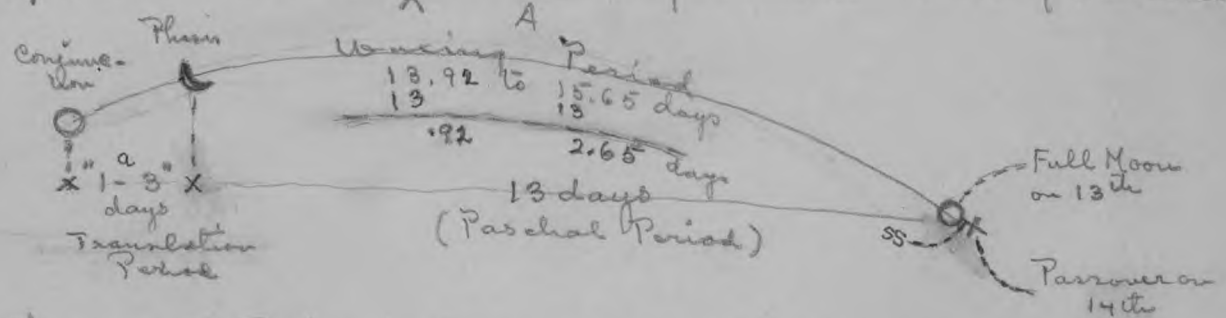 A
Phasis
Conjunc-
tion
Waxing Period
13.92 to 15.65 days
13 13
.92 2.65 days
a
"1-3"
days
Translation
Period
13 days
(Paschal Period)
SS
Full Moon
on 13th
Passover on
14th